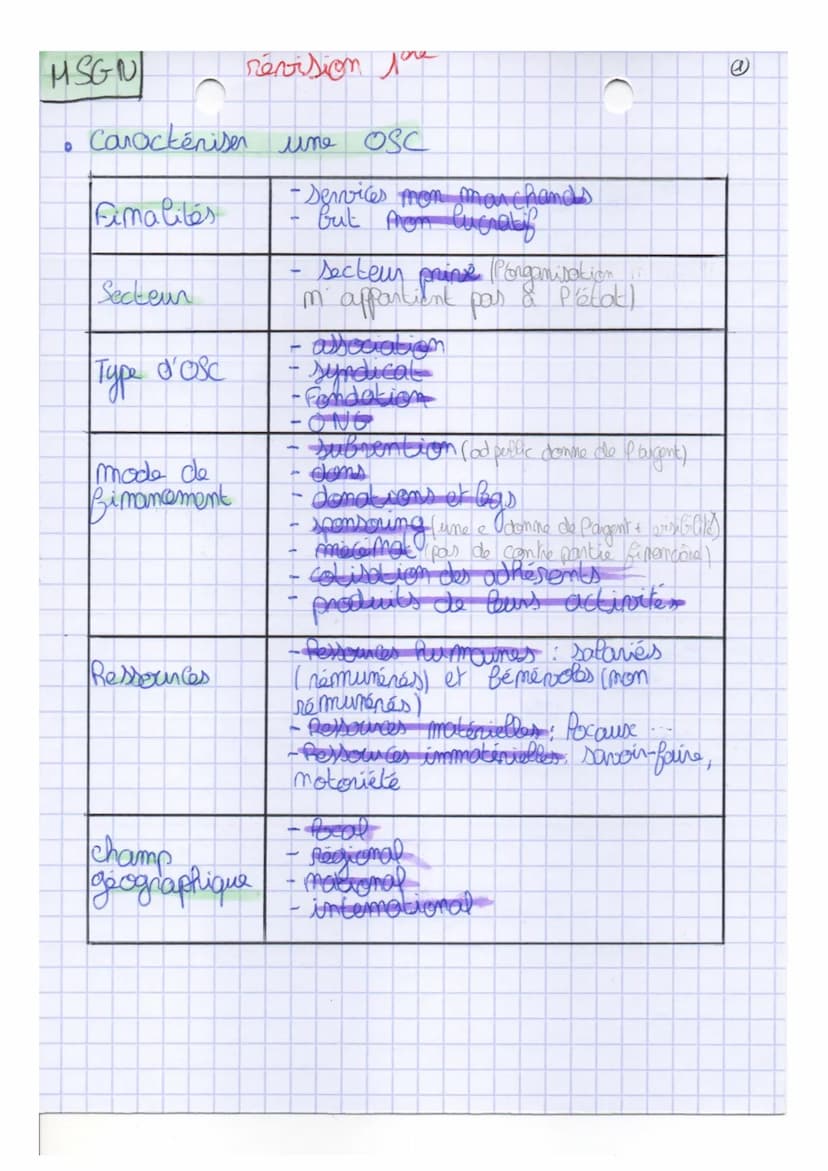 MSGN
révision 1ère
①
• Caractériser une OSC
Finalités
- Services non marchands
- but non lucratif
Secteur
- Secteur privé (l'organisation
n'appartient pas à l'état)
Type d'OSC
- association
- syndicat
- Fondation
- ONG
mode de
financement
- subvention (ad public donne de l'argent)
- dons
- donations et legs
- sponsoring (une e donne de l'argent + visibilité)
- mécénat (pas de contre partie financière)
- cotisation des adhérents
- produits de leurs activités
Ressources
- Ressources humaines : salariés
(rémunérés) et bénévoles (non
rémunérés)
- Ressources matérielles : locaux ...
- Ressources immatérielles : savoir-faire,
notoriété
champ
géographique
- local
- régional
- national
- international